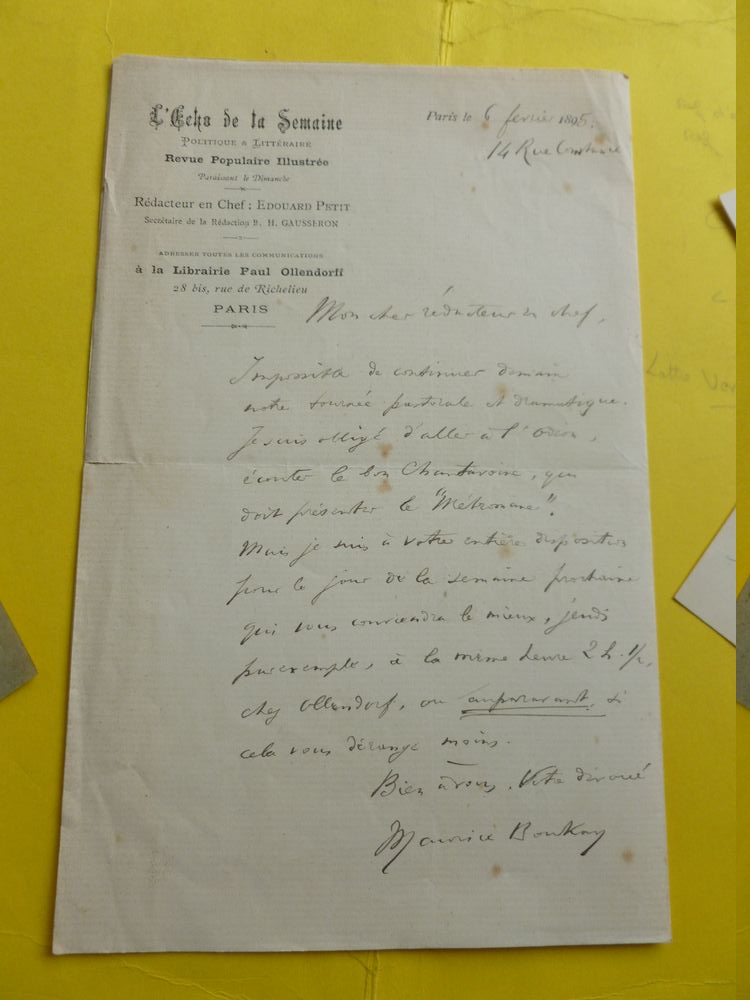 L'Echo de la Semaine
POLITIQUE & LITTÉRAIRE
Revue Populaire Illustrée
Paraissant le Dimanche
Rédacteur en Chef : EDOUARD PETIT
Secrétaire de la Rédaction B. H. GAUSSERON
ADRESSER TOUTES LES COMMUNICATIONS
à la Librairie Paul Ollendorff
28 bis, rue de Richelieu
PARIS
Paris le 6 fevrier 1895.
14 Rue Constance
Mon cher rédacteur en chef,
Impossible de continuer demain
notre tournée pastorale et dramatique.
Je suis obligé d'aller à l'Odéon,
écouter le bon Chantavoine, qui
doit présenter le "Métromane".
Mais je suis à votre entière disposition
pour le jour de la semaine prochaine
qui vous conviendra le mieux, jeudi
par exemple, à la même heure 2 h. 1/2,
chez Ollendorf, ou auparavant, si
cela vous dérange moins.
Bien à vous. Votre dévoué
Maurice Boukay